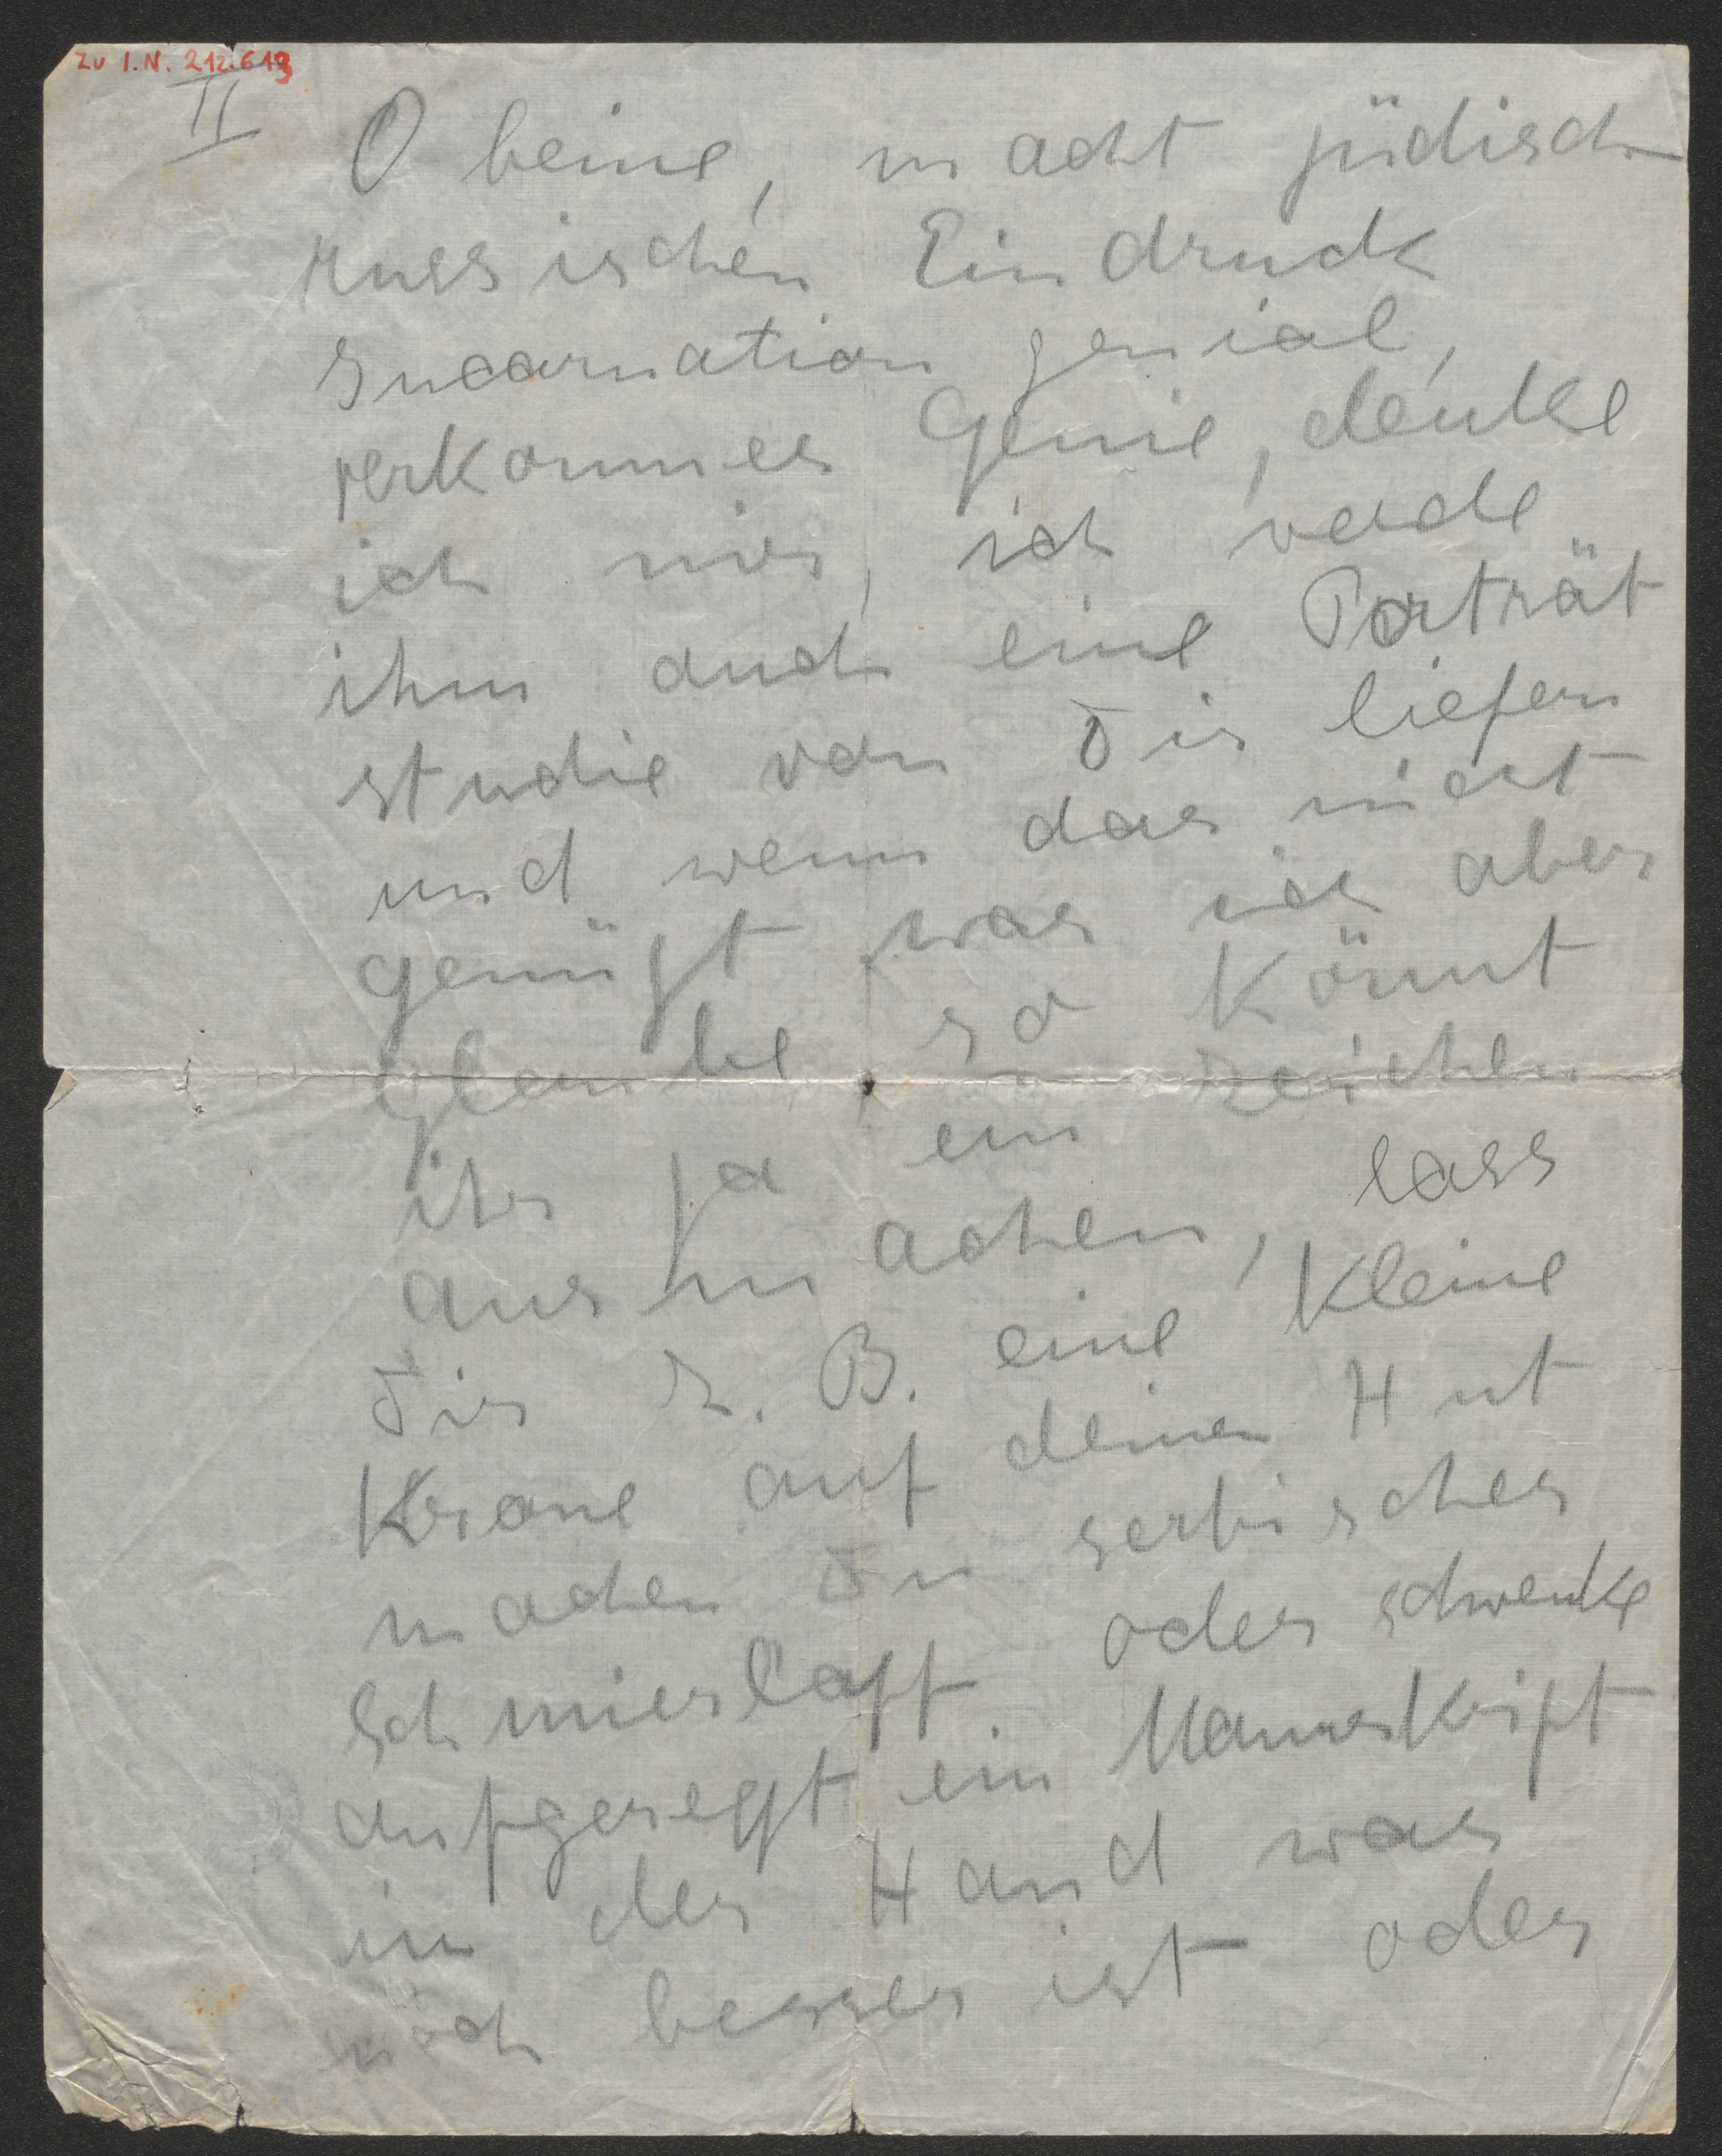 Zu I.N. 212.613
II
O beine, macht jüdisch
russischen Eindruck
Incarnation genial,
verkommes Genie, denke
ich mir, ich werde
ihm auch eine Porträt
studie von Dir liefern
und wenn das nicht
genügt was ich aber
glaube so könnt
ihr ja ein zeichen
ausmachen, lass
Dir z. B. eine kleine
Krone auf deinen Hut
machen Du serbischer
oder schwenke
aufgeregt ein Manuskript
in der Hand was
noch besser ist oder